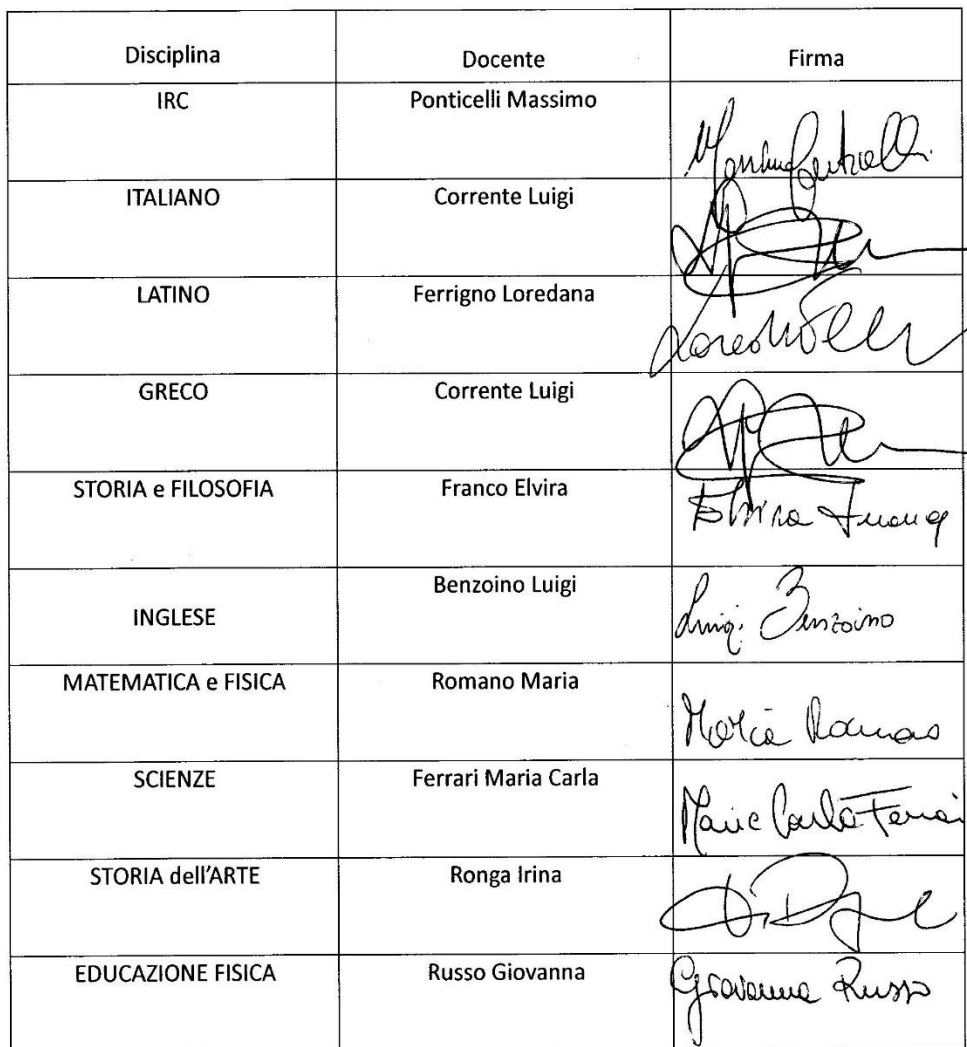 Disciplina Docente Firma
IRC Ponticelli Massimo
ITALIANO Corrente Luigi
LATINO Ferrigno Loredana
GRECO Corrente Luigi
STORIA e FILOSOFIA Franco Elvira Elvira Franco
Benzoino Luigi
INGLESE Luigi Benzoino
MATEMATICA e FISICA Romano Maria Maria Romano
SCIENZE Ferrari Maria Carla Maria Carla Ferrari
STORIA dell'ARTE Ronga Irina
EDUCAZIONE FISICA Russo Giovanna Giovanna Russo